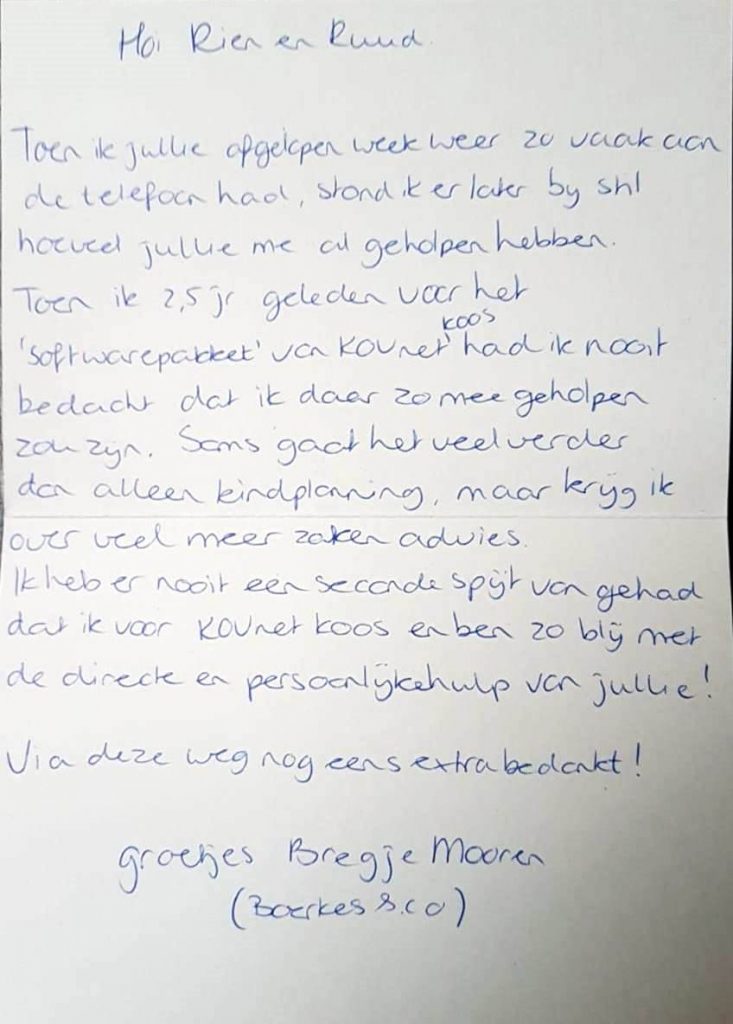 Hoi Rien en Ruud.
Toen ik jullie afgelopen week weer zo vaak aan
de telefoon had, stond ik er later by stil
hoeveel jullie me al geholpen hebben.
Toen ik 2,5 jr geleden voor het
koos
'softwarepakket' van KOVnet had ik nooit
bedacht dat ik daar zo mee geholpen
zou zijn. Soms gaat het veel verder
dan alleen kindplanning, maar krijg ik
over veel meer zaken advies.
Ik heb er nooit een seconde spijt van gehad
dat ik voor KOVnet koos en ben zo blij met
de directe en persoonlijke hulp van jullie!
Via deze weg nog eens extra bedankt!
groetjes Bregje Mooren
(Boerkes & co)